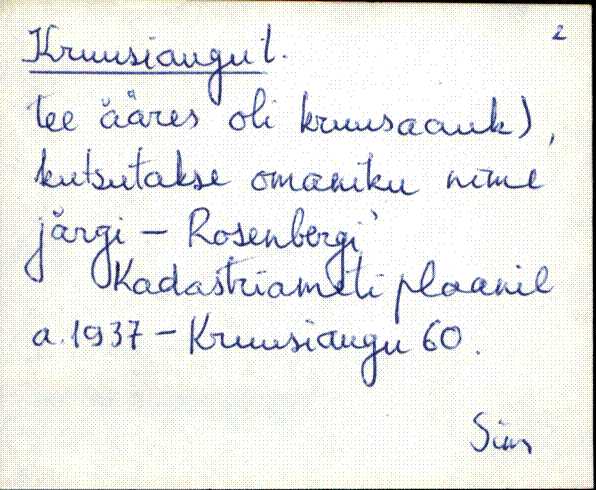 2
Kruusiangu t.
tee ääres oli kruusaauk),
kutsutakse omaniku nime
järgi – Rosenbergi
Kadastriameti plaanil
a. 1937 – Kruusiangu 60.